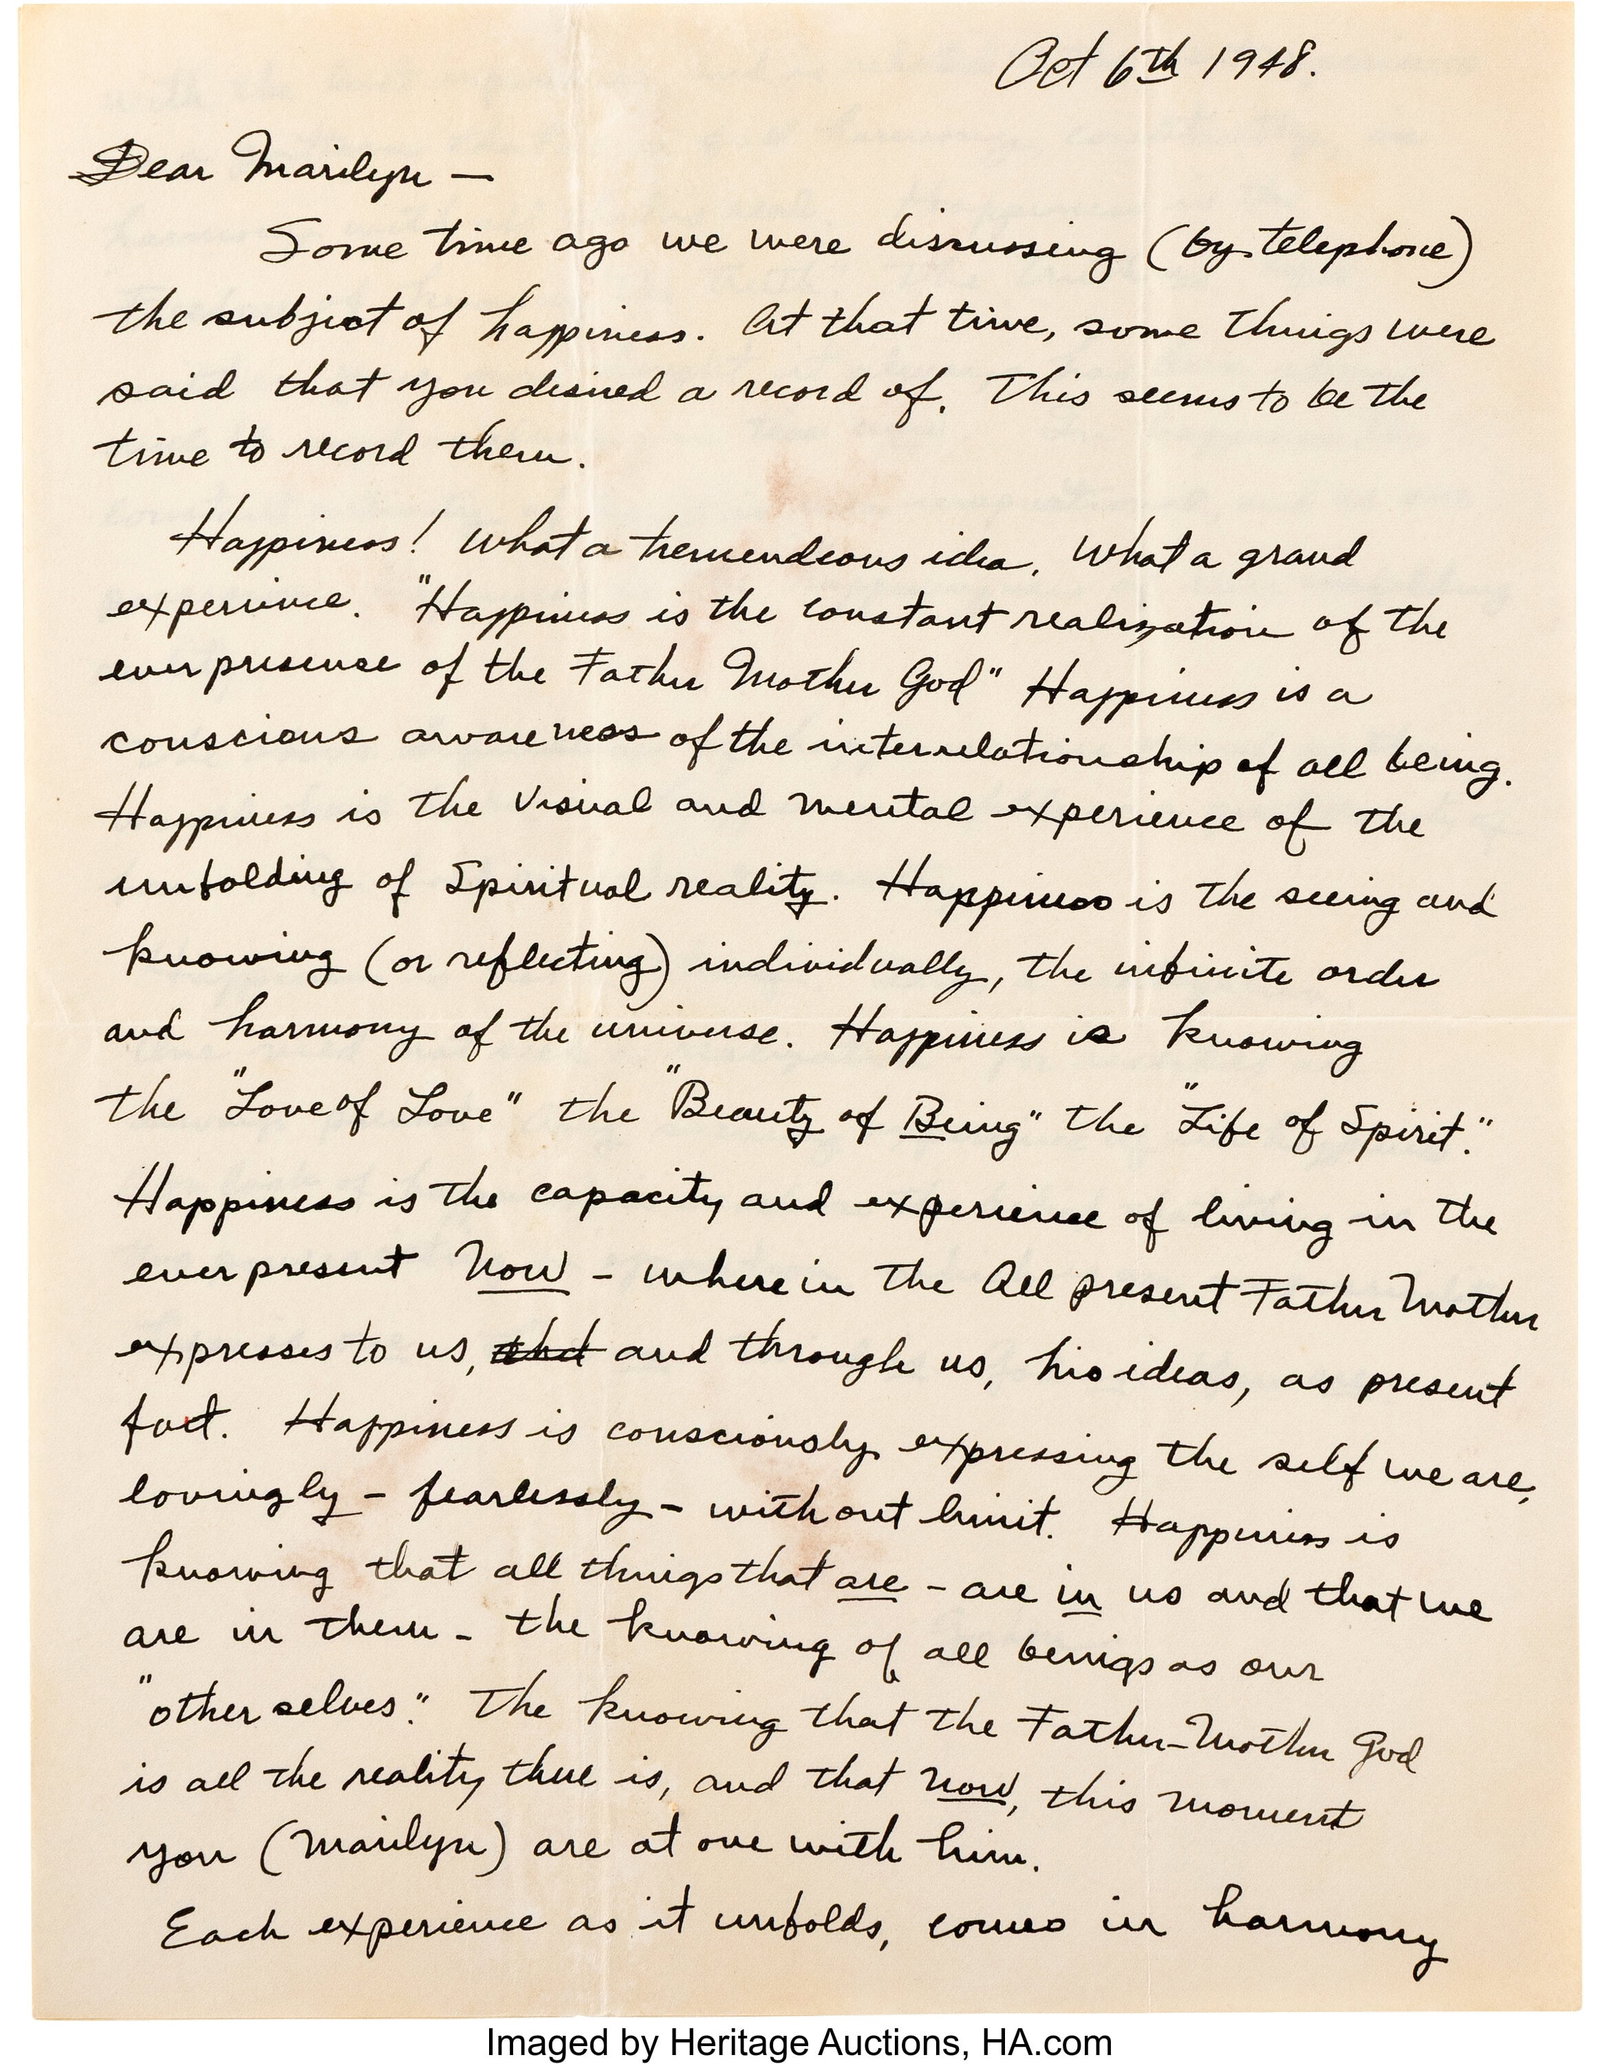 Oct 6th 1948.
Dear Marilyn —
Some time ago we were discussing (by telephone)
the subject of happiness. At that time, some things were
said that you desired a record of. This seems to be the
time to record them.
Happiness! What a tremendeous idea. What a grand
experience. "Happiness is the constant realization of the
ever presence of the Father Mother God" Happiness is a
conscious awareness of the interrelationship of all being.
Happiness is the visual and mental experience of the
unfolding of Spiritual reality. Happiness is the seeing and
knowing (or reflecting) individually, the infinite order
and harmony of the universe. Happiness is knowing
the "Love of Love" the "Beauty of Being" the "Life of Spirit."
Happiness is the capacity and experience of living in the
ever present Now – wherein the All present Father Mother
expresses to us, and through us, his ideas, as present
fact. Happiness is consciously expressing the self we are,
lovingly – fearlessly – without limit. Happiness is
knowing that all things that are – are in us and that we
are in them – the knowing of all beings as our
"other selves." The knowing that the Father–Mother God
is all the reality there is, and that now, this moment
you (Marilyn) are at one with him.
Each experience as it unfolds, comes in harmony
Imaged by Heritage Auctions, HA.com